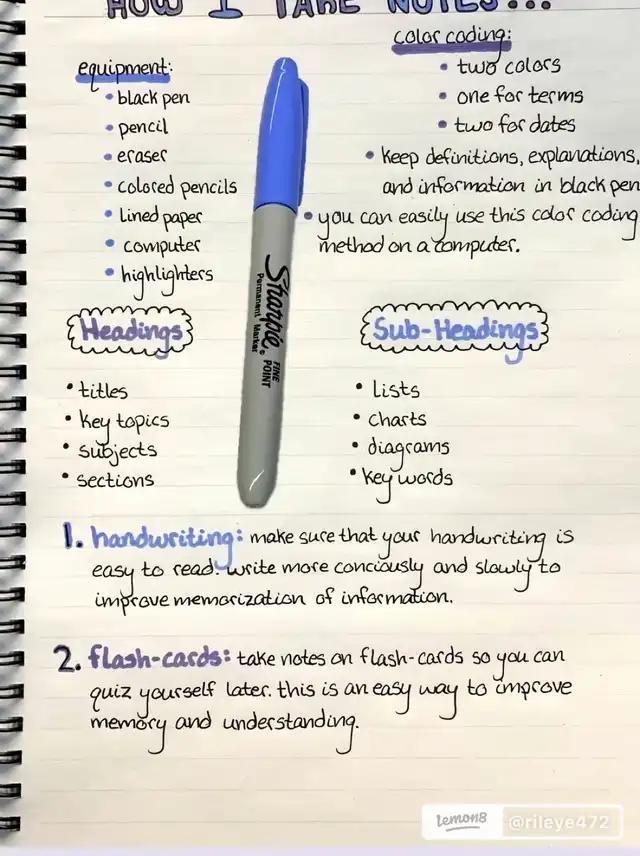 HOW I TAKE NOTES...
equipment:
• black pen
• pencil
• eraser
• colored pencils
• lined paper
• computer
• highlighters
color coding:
• two colors
• one for terms
• two for dates
• keep definitions, explanations,
and information in black pen
• you can easily use this color coding
method on a computer.
Headings
• titles
• key topics
• subjects
• sections
Sub-Headings
• Lists
• charts
• diagrams
• key words
Sharpie
FINE POINT
Permanent Marker
1. handwriting: make sure that your handwriting is
easy to read. write more conciously and slowly to
improve memorization of information.
2. flash-cards: take notes on flash-cards so you can
quiz yourself later. this is an easy way to improve
memory and understanding.
lemon8 @rileye472